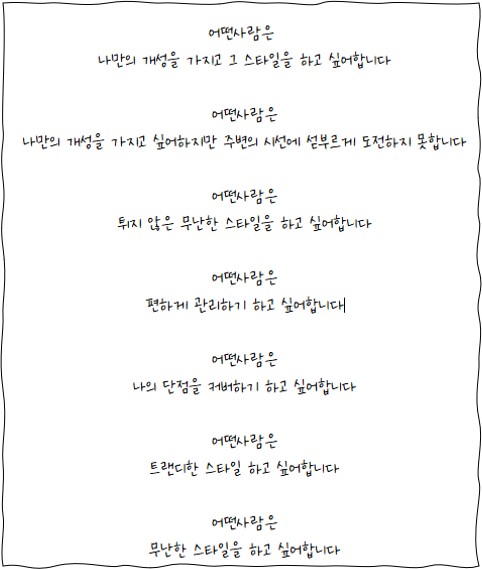 어떤사람은
나만의 개성을 가지고 그 스타일을 하고 싶어합니다
어떤사람은
나만의 개성을 가지고 싶어하지만 주변의 시선에 섣부르게 도전하지 못합니다
어떤사람은
튀지 않은 무난한 스타일을 하고 싶어합니다
어떤사람은
편하게 관리하기 하고 싶어합니다
어떤사람은
나의 단점을 커버하기 하고 싶어합니다
어떤사람은
트랜디한 스타일 하고 싶어합니다
어떤사람은
무난한 스타일을 하고 싶어합니다